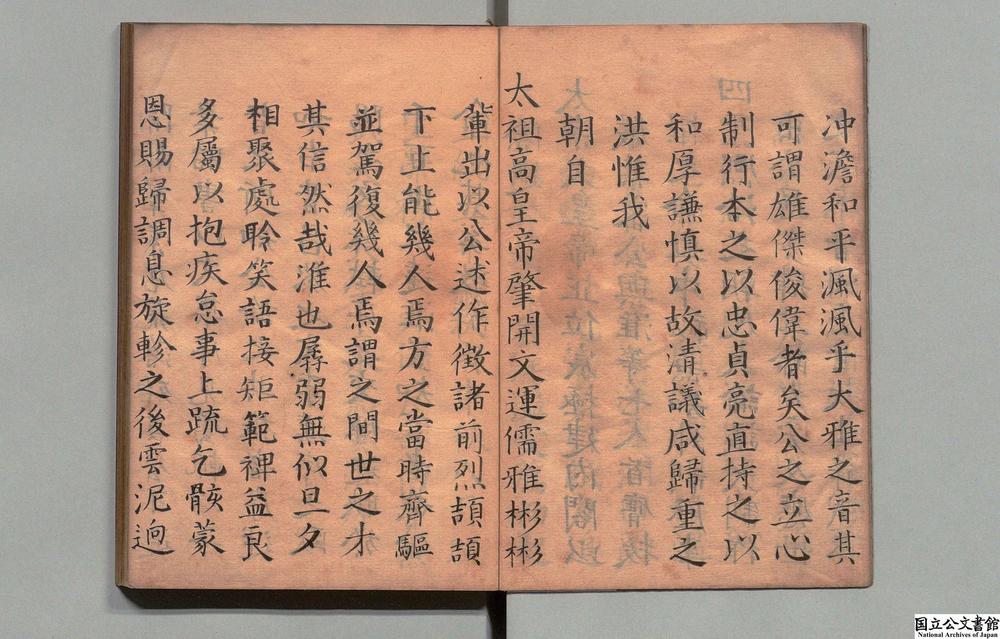 冲澹和平渢渢乎大雅之音其
可謂雄傑俊偉者矣公之立心
制行本之以忠貞亮直持之以
和厚謙慎以故清議咸歸重之
洪惟我
朝自
太祖高皇帝肇開文運儒雅彬彬
輩出以公述作徵諸前烈頡頏
卞上能幾人焉方之當時齊驅
並駕復幾人焉謂之間世之才
其信然哉淮也孱弱無似旦夕
相聚處聆笑語接矩範裨益良
多屬以抱疾怠事上疏乞骸蒙
恩賜歸調息旋軫之後雲泥逈
国立公文書館
National Archives of Japan